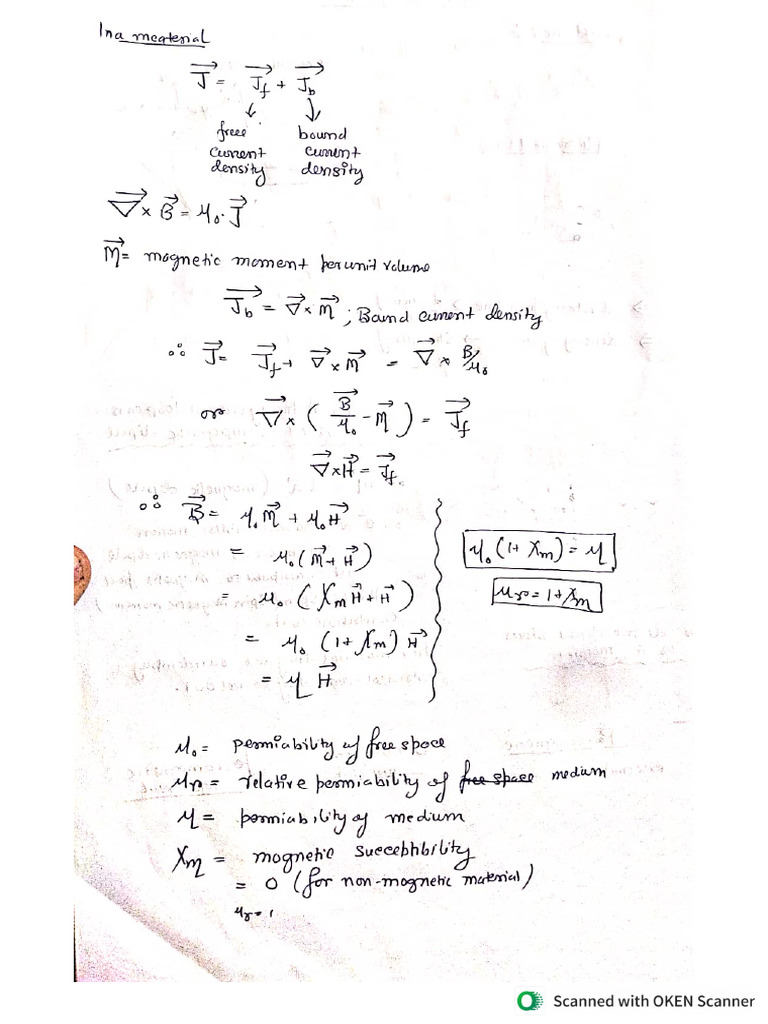 In a meaterial
J⃗ = J⃗_f + J⃗_b
↓ ↓
free bound
current current
density density
∇⃗ × B⃗ = μ₀ · J⃗
M⃗ = magnetic moment per unit volume
J⃗_b = ∇⃗ × M⃗ ; Bound current density
∴ J⃗ = J⃗_f + ∇⃗ × M⃗ = ∇⃗ × B/μ₀
or ∇⃗ × ( B⃗/μ₀ - M⃗ ) = J⃗_f
∇⃗ × H⃗ = J⃗_f
∴ B⃗ = μ₀ M⃗ + μ₀ H⃗
= μ₀ ( M⃗ + H⃗ )
= μ₀ ( χ_m H⃗ + H⃗ )
= μ₀ ( 1 + χ_m ) H⃗
= μ H⃗
μ₀ ( 1 + χ_m ) = μ
μ_r = 1 + χ_m
μ₀ = permiability of free space
μ_r = relative permiability of free space medium
μ = permiability of medium
χ_m = magnetic succeptibility
= 0 ( for non-magnetic material )
μ_r = 1
Scanned with OKEN Scanner